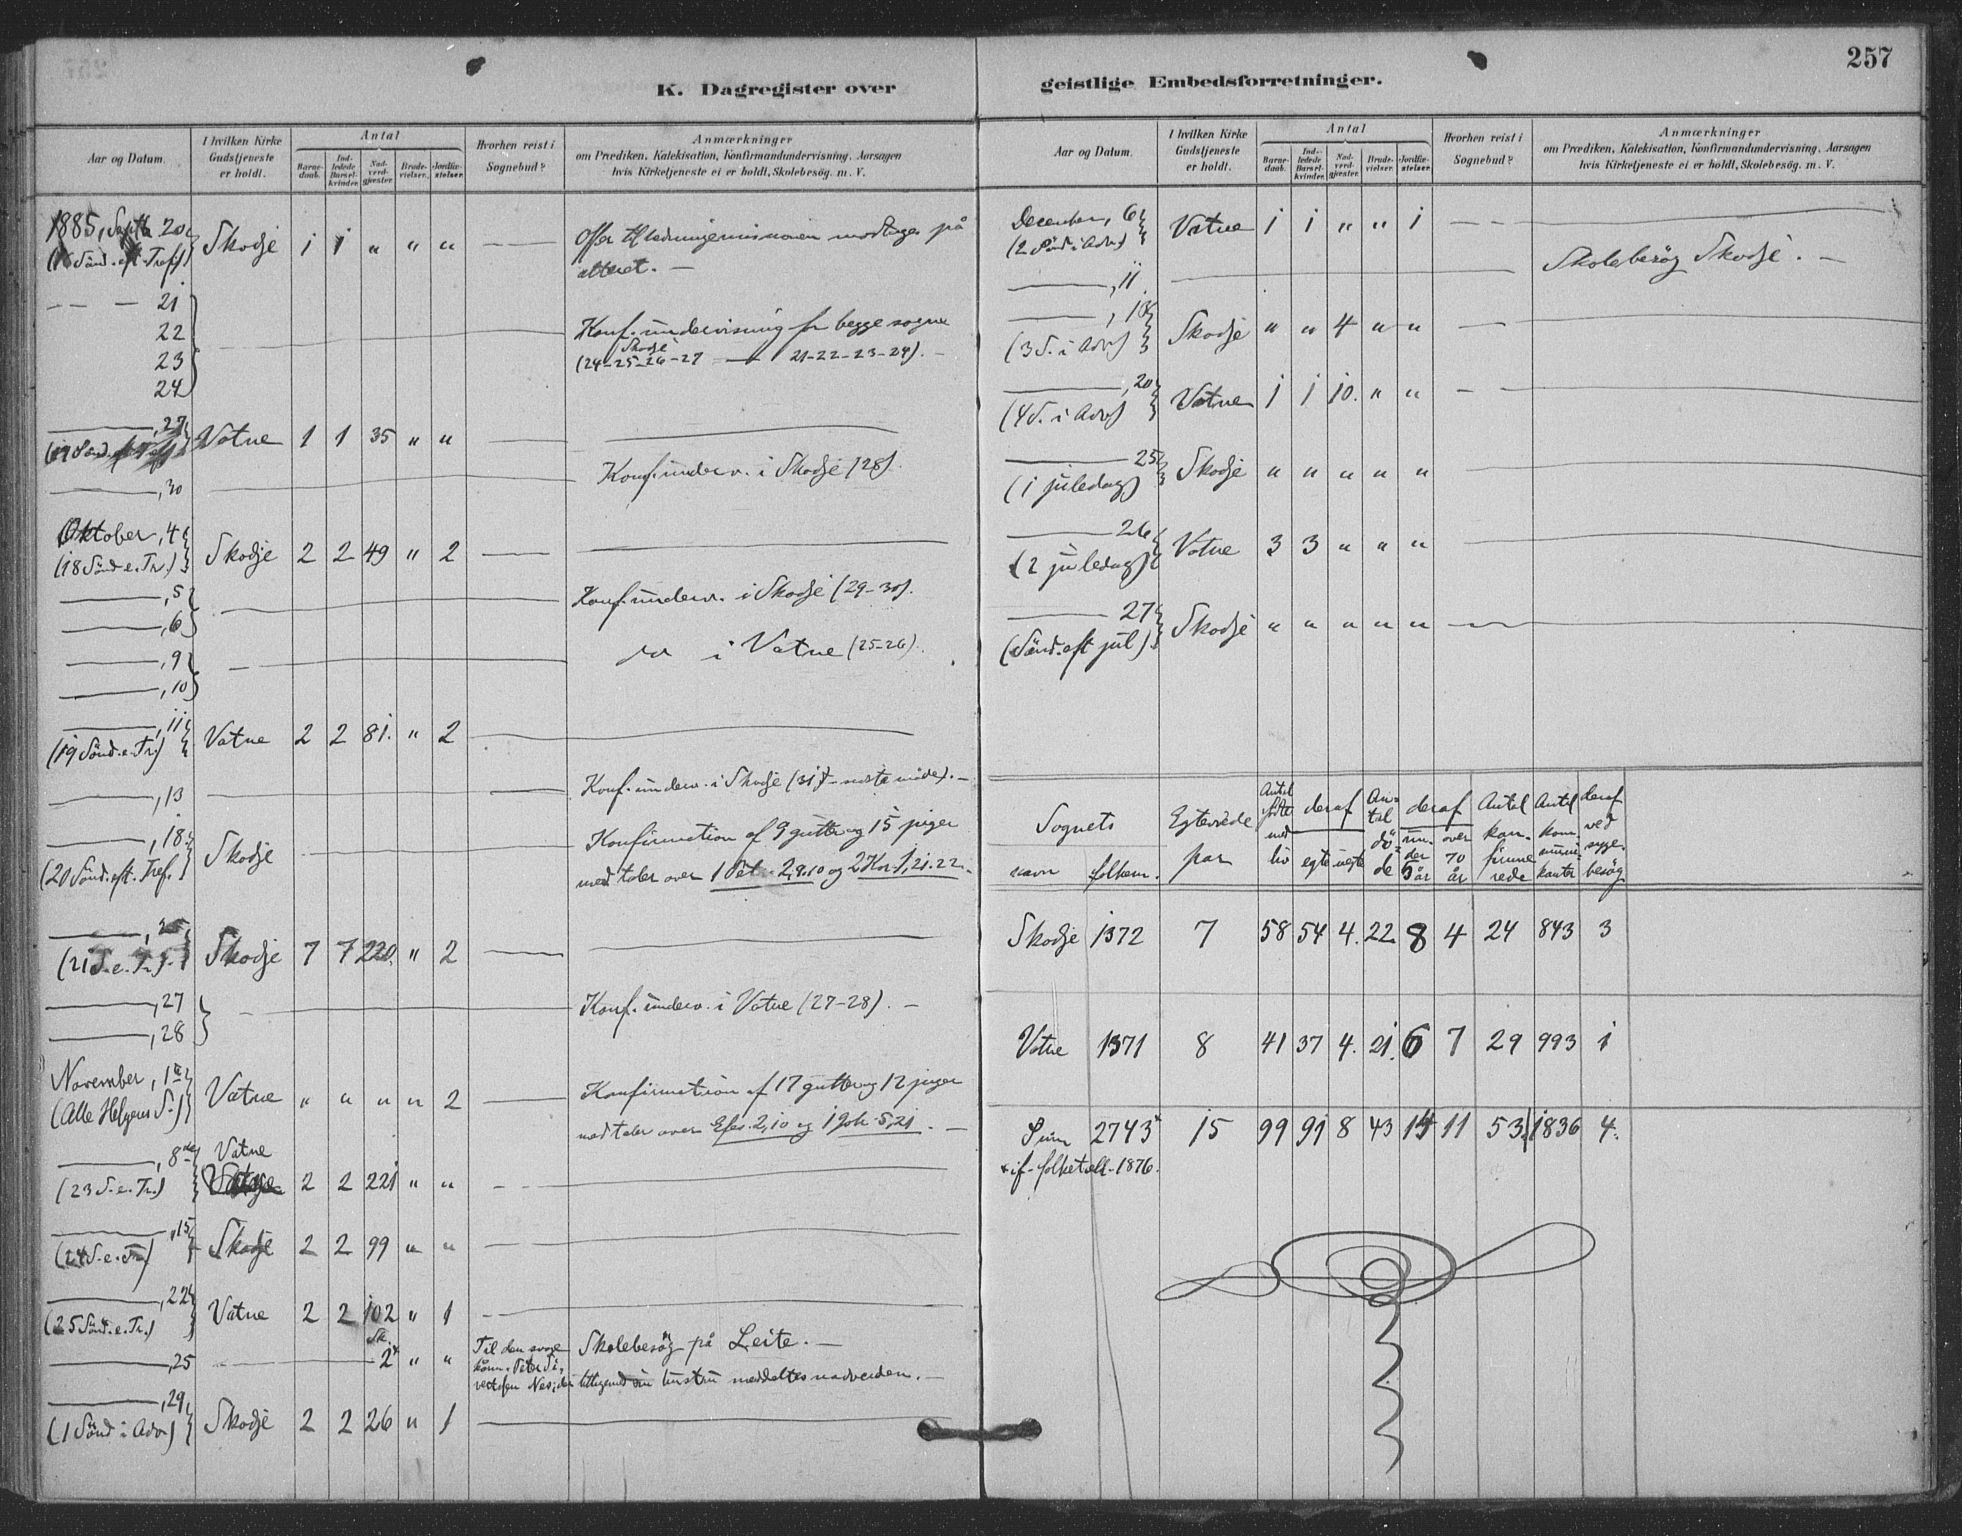 K. Dagregister over
Aar og Datum.
I hvilken Kirke Gudstjeneste er holdt.
Antal
Barnedaab.
Indledede Barselkvinder.
Nadverdgjester.
Brudevielser.
Jordfæstelser.
Hvorhen reist i Sognebud?
Anmærkninger
om Prædiken, Katekisation, Konfirmandundervisning, Aarsagen
hvis Kirketjeneste ei er holdt, Skolebesøg. m. V.
1885, Septb. 20 Skodje 1 1 " " " Offer til modtages på
alteret. —
— — 21
22 Konf. undervisning for begge sogne
Skodje
23 (24-25-26-27 — 21-22-23-24). —
24
, 27 Vatne 1 1 35 " "
, 30 Konf. underv. i Skodje (28).
Oktober, 4 Skodje 2 2 49 " 2
(18 Sönd. e. Tr.)
, 5 Konf. underv. i Skodje (29-30).
, 6
, 9 do i Vatne (25-26).
, 10
, 11 Vatne 2 2 81. " 2
(19 Sönd. e. Tr.)
, 13 Konf. underv. i Skodje (31 — sidste möde). —
, 18 Skodje Konfirmation af 9 gutter og 15 piger
(20 Sönd. eft. Tref. med taler over 1 Pet. 2,9.10 og 2 Kor. 1,21.22.
, 25 Skodje 7 7 220. " 2
(21 S. e. Tr.)
, 27 Konf. underv. i Vatne (27-28). —
, 28
November, 1ste Vatne " " " " 2 Konfirmation af 17 gutter og 12 piger
(Alle Helgens S.) med taler over Efes. 2,10 og 1 Joh. 5,21. —
, 8de Vatne
(23 S. e. Tr.) 2 2 221 " "
, 15 Skodje 2 2 99 " "
(24 S. e. Tr.)
, 22 Vatne 2 2 102 " 1
(25 Sönd. e. Tr.)
Sk.
, 25 2 " " Til den svage Skolebesög på Leite. —
Peter Sivertsen hustru meddeltes nadverden. —
, 29, Skodje 2 2 26 " 1
(1 Sönd i Adv.)
geistlige Embedsforretninger.
257
Aar og Datum.
I hvilken Kirke Gudstjeneste er holdt.
Antal
Barnedaab.
Indledede Barselkvinder.
Nadverdgjester.
Brudevielser.
Jordfæstelser.
Hvorhen reist i Sognebud?
Anmærkninger
om Prædiken, Katekisation, Konfirmandundervisning, Aarsagen
hvis Kirketjeneste ei er holdt, Skolebesøg. m. V.
December, 6 Vatne 1 1 " " 1
(2 Sönd i Adv.)
, 11. Skolebesög Skodje. —
, 13 Skodje " " 4 " "
(3 S. i Adv)
, 20 Vatne 1 1 10. " "
(4 S. i Adv)
25 Skodje " " " " "
(1 juledag)
26 Vatne 3 3 " " "
(2 juledag)
27 Skodje " " " " "
(Sönd. eft jul)
Sognets navn folkem.
Egteviede par
Antal födte med liv
deraf egte uegte
Antal döde
deraf under 5 år over 70 år
Antal konfirmerede
Antal kommunikanter
deraf ved sygebesög
Skodje 1372 7 58 54 4. 22. 8 4 24 843 3
Vatne 1371 8 41 37 4. 21. 6 7 29 993 1
Sum 2743* 15 99 91 8 43 14 11 53. 1836 4.
* if. folketæll. 1876.